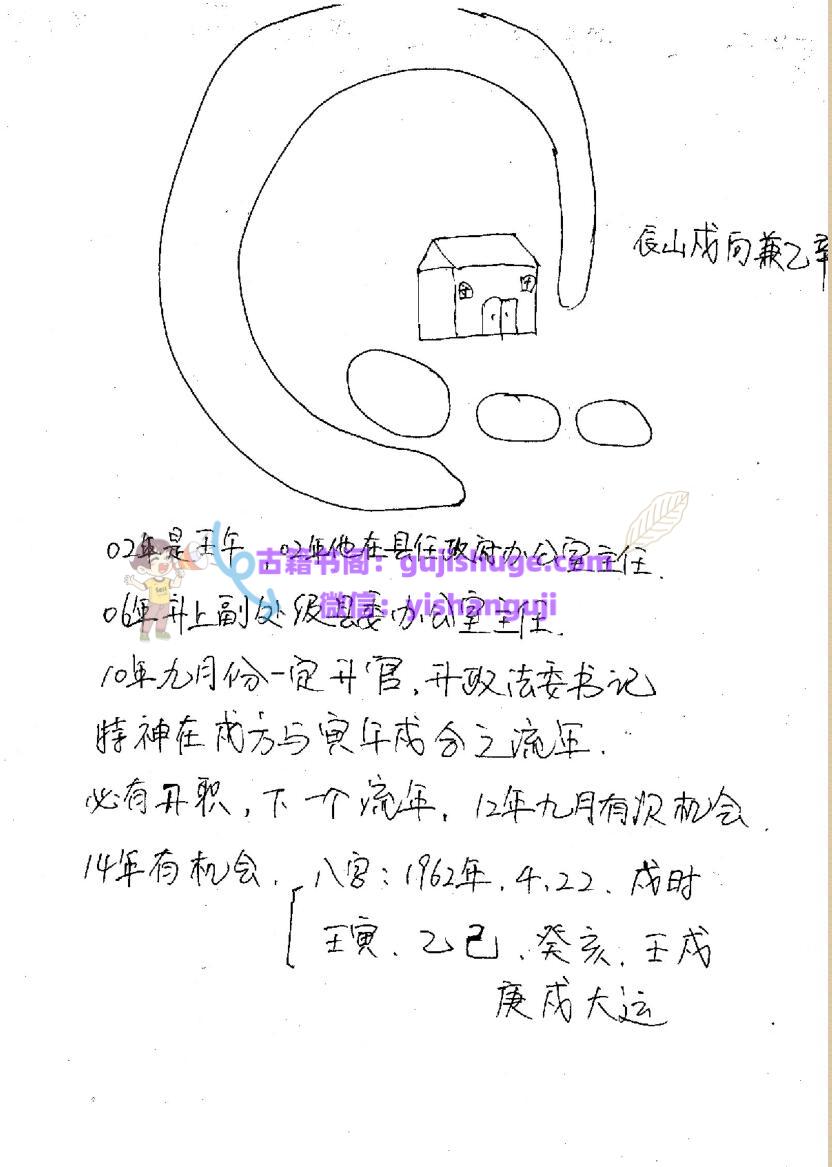 辰山戌向兼乙辛
02年是壬午，02年他在县任政府办公室主任.
古籍书阁：gujishuge.com
微信：yishanguji
06年升上副处级县委办公室主任.
10年九月份一定升官，升政法委书记
特神在戌方与寅年戌合之流年.
必有升职，下一个流年，12年九月有次机会.
14年有机会. 八字：1962年.4.22. 戌时
壬寅、乙巳、癸亥、壬戌
庚戌大运